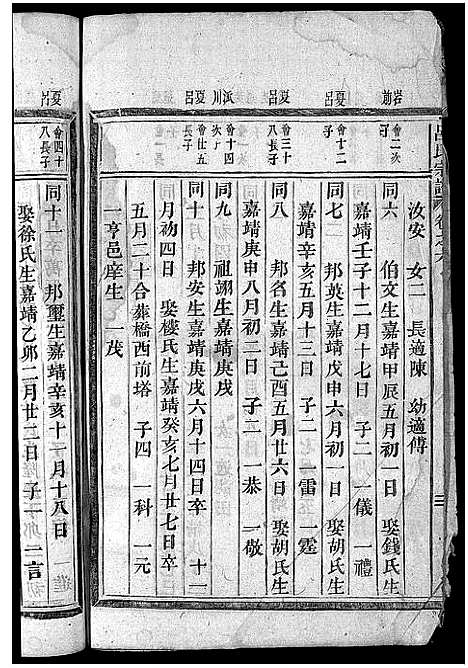 岩前
夏呂
夏呂
派川
夏呂
夏呂
會二次子
會十二子
會三十子
會十四次子
會廿五長子
會四十八長子
汝安 女二 長適陳 幼適傅
同六 伯文生嘉靖甲辰五月初一日 娶錢氏生
嘉靖壬子十二月十七日 子二 一儀 一禮
同七 邦英生嘉靖戊申六月初一日 娶胡氏生
嘉靖辛亥五月十三日 子二 一雷 一霆
同八 邦名生嘉靖己酉五月廿六日 娶胡氏生
嘉靖庚申八月初二日 子二 一恭 一敬
同九 祖翊生嘉靖庚戌
同十 邦安生嘉靖庚戌六月十四日卒 十一
月初四日 娶樓氏生嘉靖癸亥七月廿七日卒
五月二十合葬橋西前塔 子四 一科 一元
一亨邑庠生 一茂
同十一 邦璽生嘉靖辛亥十一月十八日
娶徐氏生嘉靖乙卯二月廿二日 子一 一言